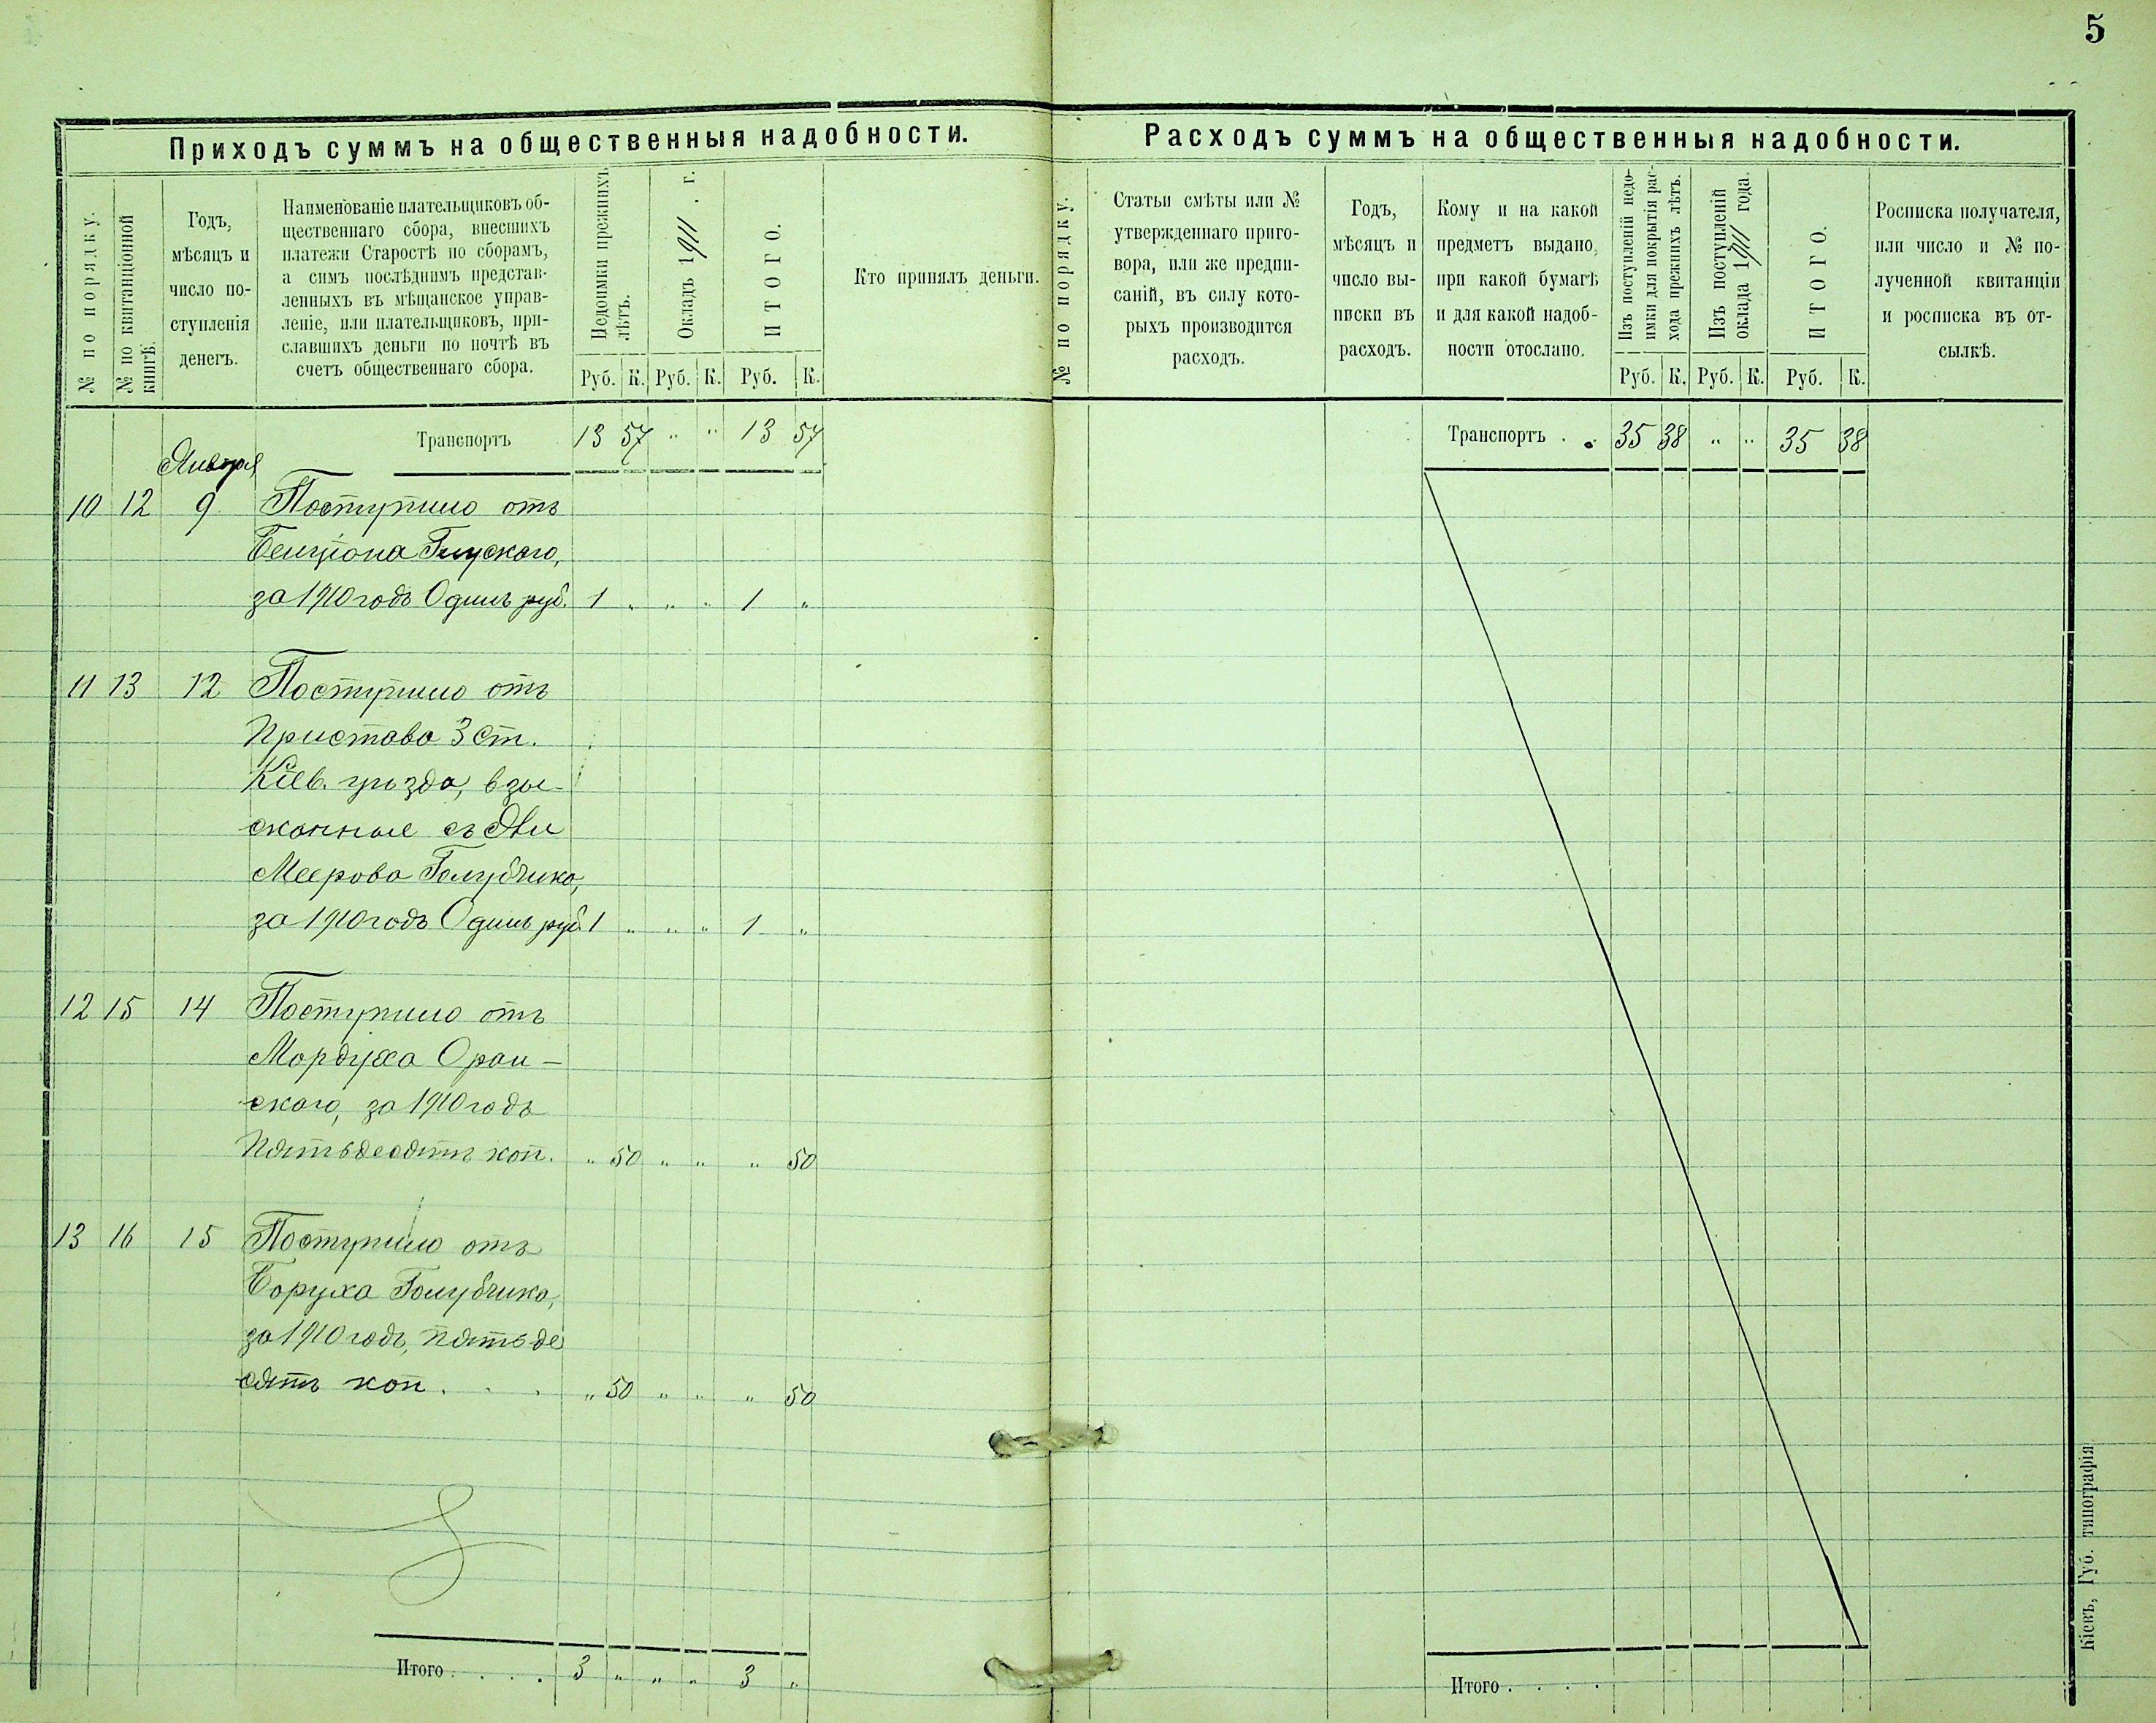 5
Приходъ суммъ на общественныя надобности.
№ по порядку.
№ по квитанціонной
книгѣ.
Годъ,
мѣсяцъ и
число по-
ступленія
денегъ.
Наименованіе плательщиковъ об-
щественнаго сбора, внесшихъ
платежи Старостѣ по сборамъ,
а симъ послѣднимъ представ-
ленныхъ въ мѣщанское управ-
леніе, или плательщиковъ, при-
славшихъ деньги по почтѣ въ
счетъ общественнаго сбора.
Недоимки прежнихъ
лѣтъ.
Окладъ 1911 . г.
ИТОГО.
Руб. К. Руб. К. Руб. К.
Кто принялъ деньги.
Транспортъ 13 57 " " 13 57
Января
10 12 9 Поступило отъ
Бенціона
за 1910 годъ Одинъ руб. 1 " " " 1 "
11 13 12 Поступило отъ
Пристава 3 ст.
Кіев. уѣзда, взы-
сканные съ Яви
Меерова Голубчика,
за 1910 годъ Одинъ руб. 1 " " " 1 "
12 15 14 Поступило отъ
Мордуха Оран-
скаго, за 1910 годъ
Пятьдесятъ коп. " 50 " " " 50
13 16 15 Поступило отъ
Боруха Голубчика,
за 1910 годъ, пятьде
сятъ коп. . . " 50 " " " 50
Итого . . . . 3 " " " 3 "
Расходъ суммъ на общественныя надобности.
№ по порядку.
Статьи смѣты или №
утвержденнаго приго-
вора, или же предпи-
саній, въ силу кото-
рыхъ производится
расходъ.
Годъ,
мѣсяцъ и
число вы-
писки въ
расходъ.
Кому и на какой
предметъ выдано,
при какой бумагѣ
и для какой надоб-
ности отослано.
Изъ поступленій недо-
имки для покрытія рас-
хода прежнихъ лѣтъ.
Изъ поступленій
оклада 1911 года.
ИТОГО.
Руб. К. Руб. К. Руб. К.
Росписка получателя,
или число и № по-
лученной квитанціи
и росписка въ от-
сылкѣ.
Транспортъ . . 35 38 " " 35 38
Итого . . . .
Кіевъ, Губ. типографія